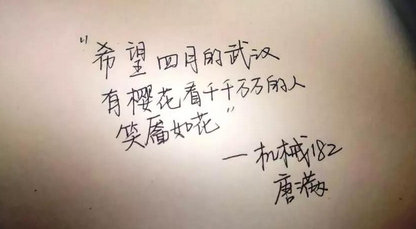 "希望四月的武汉
有樱花看千千万万的人
笑靥如花"
—机械182
唐满